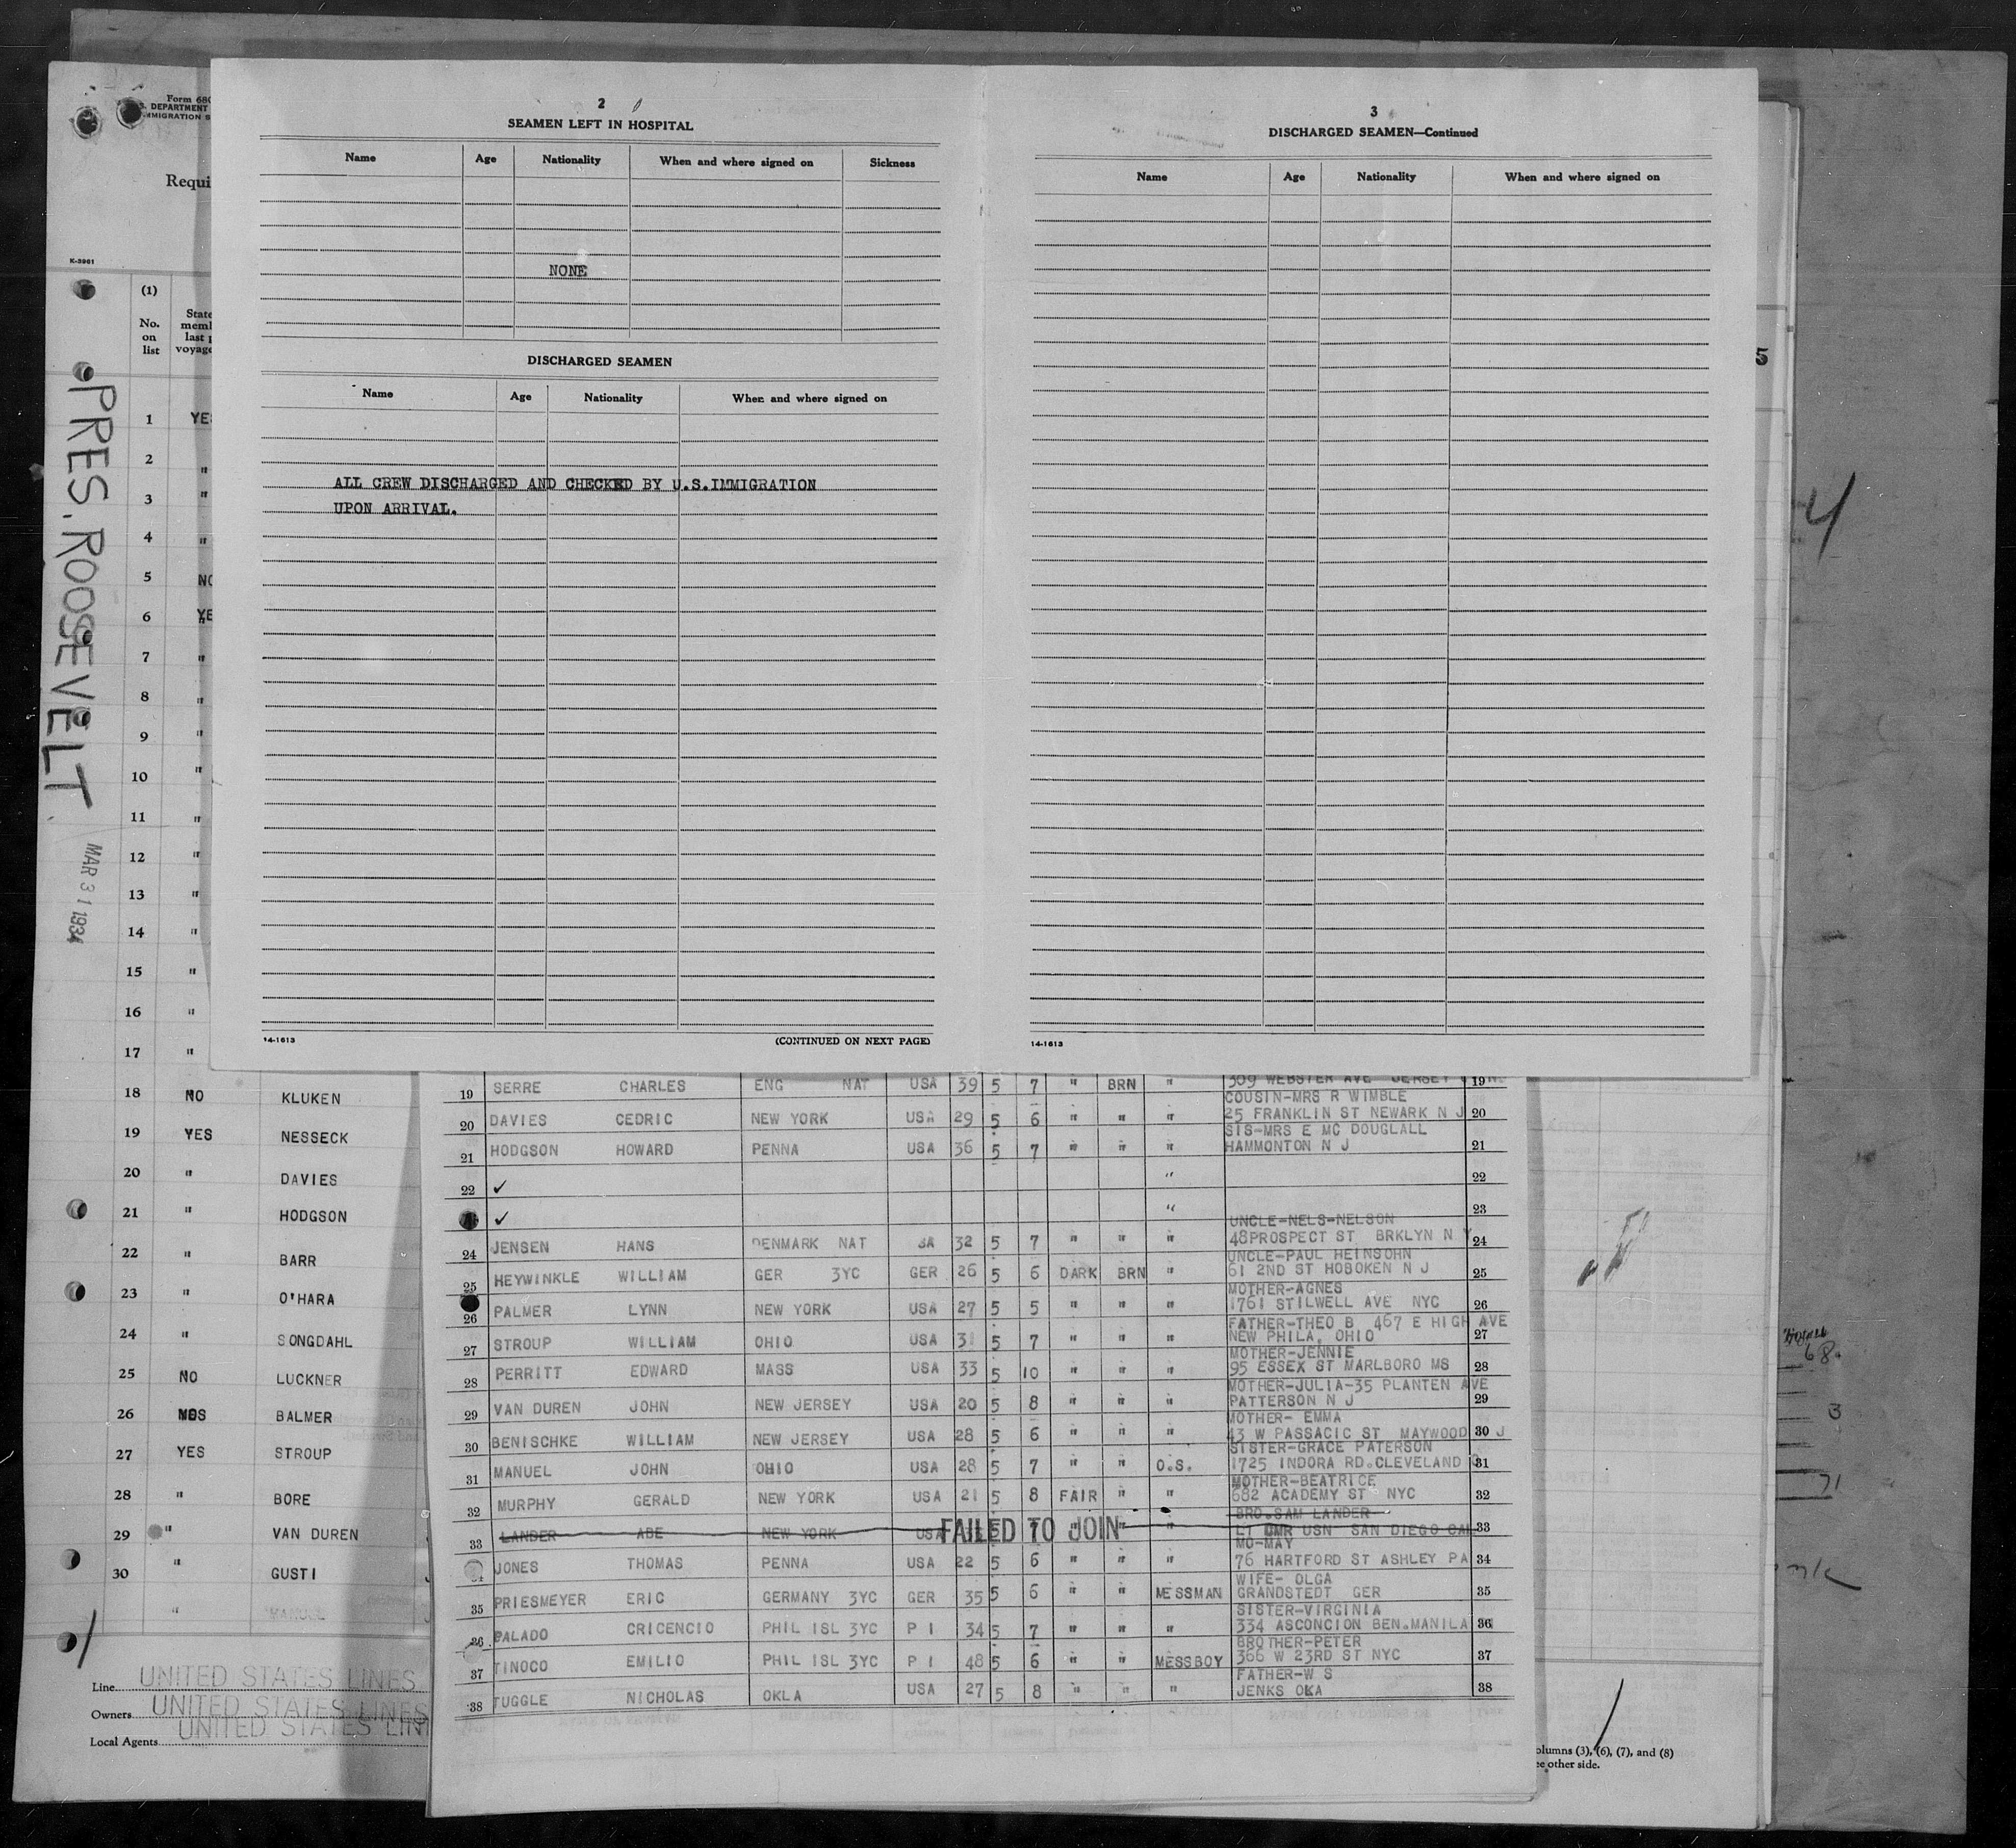 Form 680
DEPARTMENT
IMMIGRATION S
Requi
K-3961
(1)
No. on list
State
memb
last p
voyage
PRES. ROOSEVELT
MAR 31 1934
1 YES
2 "
3 "
4 "
5 NO
6 YE
7 "
8 "
9 "
10 "
11 "
12 "
13 "
14 "
15 "
16 "
17 "
18 NO KLUKEN
19 YES NESSECK
20 " DAVIES
21 " HODGSON
22 " BARR
23 " O'HARA
24 " SONGDAHL
25 NO LUCKNER
26 BALMER
27 YES STROUP
28 " BORE
29 " VAN DUREN
30 " GUSTI
" MANUEL
Line UNITED STATES LINES
Owners UNITED STATES LINES
Local Agents UNITED STATES LIN
2
SEAMEN LEFT IN HOSPITAL
Name Age Nationality When and where signed on Sickness
NONE
DISCHARGED SEAMEN
Name Age Nationality When and where signed on
ALL CREW DISCHARGED AND CHECKED BY U.S.IMMIGRATION
UPON ARRIVAL.
14-1613 (CONTINUED ON NEXT PAGE)
3
DISCHARGED SEAMEN—Continued
Name Age Nationality When and where signed on
14-1613
19 SERRE CHARLES ENG NAT USA 39 5 7 " BRN " 309 WEBSTER AVE JERSEY 19
COUSIN-MRS R WIMBLE
20 DAVIES CEDRIC NEW YORK USA 29 5 6 " " " 25 FRANKLIN ST NEWARK N J 20
SIS-MRS E MC DOUGLALL
21 HODGSON HOWARD PENNA USA 36 5 7 " " " HAMMONTON N J 21
22 ✓ " 22
✓ " 23
UNCLE-NELS-NELSON
24 JENSEN HANS DENMARK NAT SA 32 5 7 " " " 48PROSPECT ST BRKLYN N Y 24
UNCLE-PAUL HEINSOHN
25 HEYWINKLE WILLIAM GER 3YC GER 26 5 6 DARK BRN " 61 2ND ST HOBOKEN N J 25
MOTHER-AGNES
26 PALMER LYNN NEW YORK USA 27 5 5 " " " 1761 STILWELL AVE NYC 26
FATHER-THEO B 467 E HIGH AVE
27 STROUP WILLIAM OHIO USA 31 5 7 " " " NEW PHILA, OHIO 27
MOTHER-JENNIE
28 PERRITT EDWARD MASS USA 33 5 10 " " " 95 ESSEX ST MARLBORO MS 28
MOTHER-JULIA-35 PLANTEN AVE
29 VAN DUREN JOHN NEW JERSEY USA 20 5 8 " " " PATTERSON N J 29
MOTHER- EMMA
30 BENISCHKE WILLIAM NEW JERSEY USA 28 5 6 " " " 43 W PASSACIC ST MAYWOOD 30 J
SISTER-GRACE PATERSON
31 MANUEL JOHN OHIO USA 28 5 7 " " O.S. 1725 INDORA RD.CLEVELAND 31
MOTHER-BEATRICE
32 MURPHY GERALD NEW YORK USA 21 5 8 FAIR " " 682 ACADEMY ST NYC 32
BRO.SAM LANDER
33 LANDER ABE NEW YORK USA FAILED TO JOIN 5 7 " " " LT CMR USN SAN DIEGO CAL 33
MO-MAY
JONES THOMAS PENNA USA 22 5 6 " " " 76 HARTFORD ST ASHLEY PA 34
WIFE- OLGA
35 PRIESMEYER ERIC GERMANY 3YC GER 35 5 6 " " MESSMAN GRANDSTEDT GER 35
SISTER-VIRGINIA
36 PALADO CRICENCIO PHIL ISL 3YC P I 34 5 7 " " " 334 ASCONCION BEN.MANILA 36
BROTHER-PETER
37 TINOCO EMILIO PHIL ISL 3YC P I 48 5 6 " " MESSBOY 366 W 23RD ST NYC 37
FATHER-W S
38 TUGGLE NICHOLAS OKLA USA 27 5 8 " " " JENKS OKA 38
5
4
68
3
71
olumns (3), (6), (7), and (8)
ee other side.